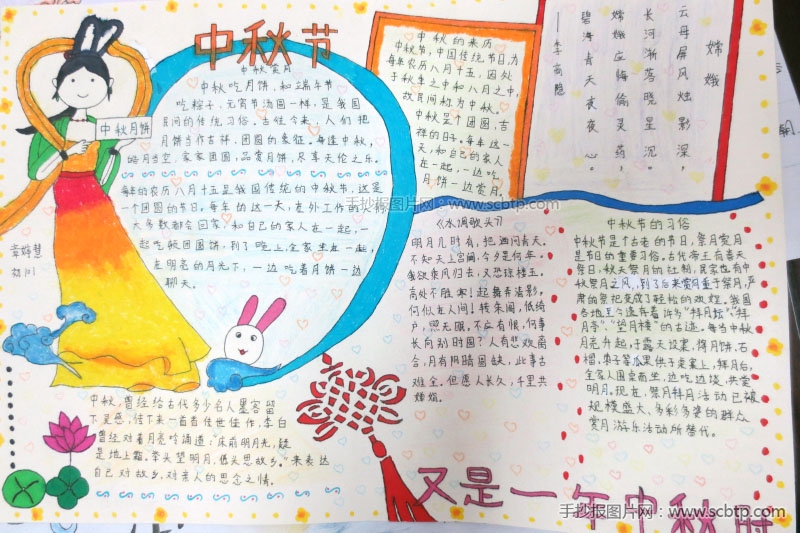 中秋节
中秋赏月
中秋吃月饼，和端午节
吃粽子，元宵节汤圆一样，是我国
民间的传统习俗。古往今来，人们把
月饼当作吉祥，团圆的象征。每逢中秋，
皓月当空，家家团圆，品赏月饼，尽享天伦之乐。
每年的农历八月十五是我国传统的中秋节，这是
一个团圆的节日，每年的这一天，在外工作的人
大多数都会回家，和自己的家人在一起，一
起吃顿团圆饭，到了晚上全家坐在一起，
在明亮的月光下，一边吃着月饼一边
聊天。
中秋月饼
中秋的来历
中秋节，中国传统节日，为
每年农历八月十五，因处
于秋季之中和八月之中，
故民间称为中秋。
中秋是个团圆，吉
祥的日子。每年这一
天，和自己的家人
在一起，一边吃
月饼一边赏月。
嫦娥
云母屏风烛影深，
长河渐落晓星沉。
嫦娥应悔偷灵药，
碧海青天夜夜心。
——李商隐
手抄报图片网：www.scbtp.com
《水调歌头》
明月几时有，把酒问青天。
不知天上宫阙，今夕是何年。
我欲乘风归去，又恐琼楼玉
高处不胜寒！起舞弄清影，
何似在人间！转朱阁，低绮
户，照无眠。不应有恨，何事
长向别时圆？人有悲欢离
合，月有阴晴圆缺，此事古
难全。但愿人长久，千里共
婵娟。
中秋节的习俗
中秋节是个古老的节日，祭月赏月
是节日的重要习俗。古代帝王有春天
祭日，秋天祭月的社制，民家也有中
秋祭月之风，到了后来赏月重于祭月，严
肃的祭祀变成了轻松的欢娱。我国
各地至今遗存着许多“拜月坛”、“拜
月亭”、“望月楼”的古迹。每当中秋
月亮升起，于露天设案，将月饼、石
榴、枣子等瓜果供于桌案上，拜月后，
全家人围桌而坐，边吃边谈，共赏
明月。现在，祭月拜月活动已被
规模盛大、多彩多姿的群众
赏月游乐活动所替代。
中秋，曾经给古代多少名人墨客留
下灵感，传下来一首首传世佳作，李白
曾经对着月亮吟诵道：“床前明月光，疑
是地上霜。举头望明月，低头思故乡。”来表达
自己对故乡，对亲人的思念之情。
又是一年中秋时
手抄报图片网：www.scbtp.com